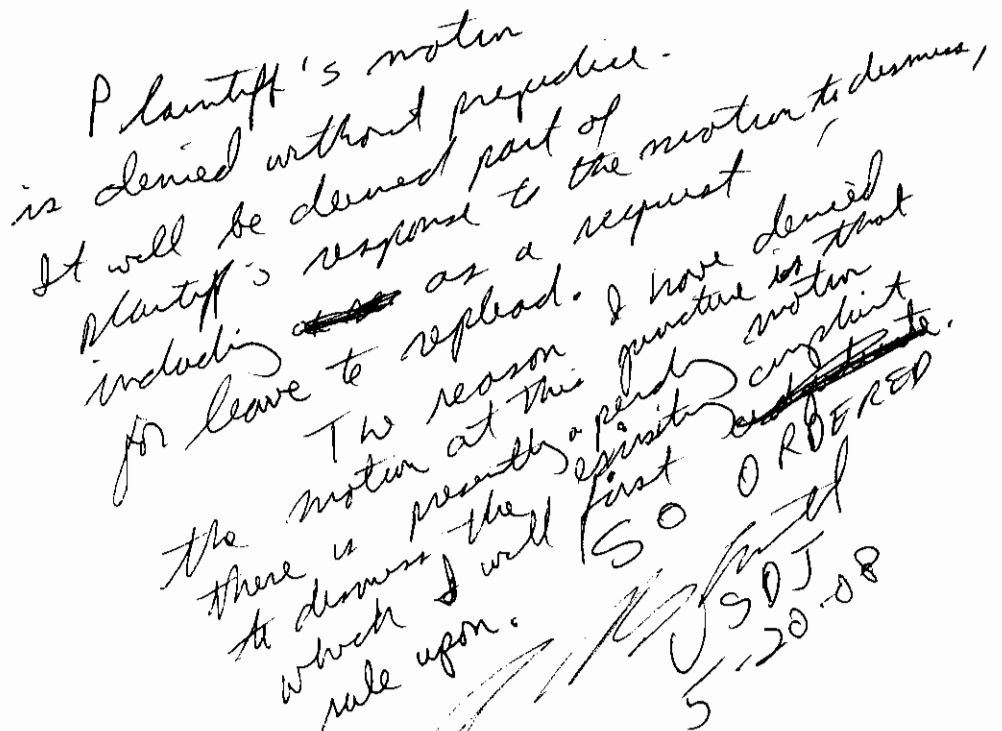 Plaintiff's motion
is denied without prejudice.
It will be deemed part of
plaintiff's response to the motion to dismiss,
including as a request
for leave to replead.
The reason I have denied
the motion at this juncture is that
there is presently a pending motion
to dismiss the existing complaint
which I will first
rule upon.
SO ORDERED
USDJ
5-20-08